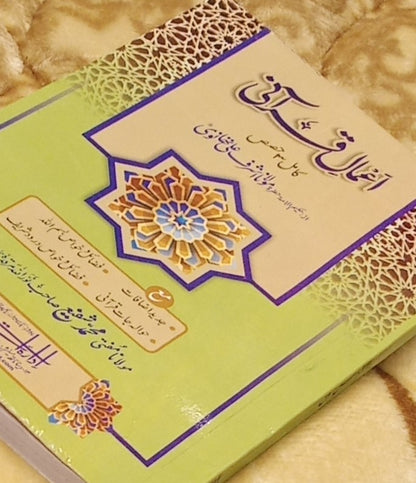 اعمالِ قرآنی
کامل ۳ حصص
از حکیم الامت حضرت مولانا اشرف علی تھانویؒ
مع
جدید اضافات
فضائل و خواص بسم اللہ
حوالہ جات قرآنی
فضائل و خواص درود شریف
مولانا مفتی محمد شفیع صاحب